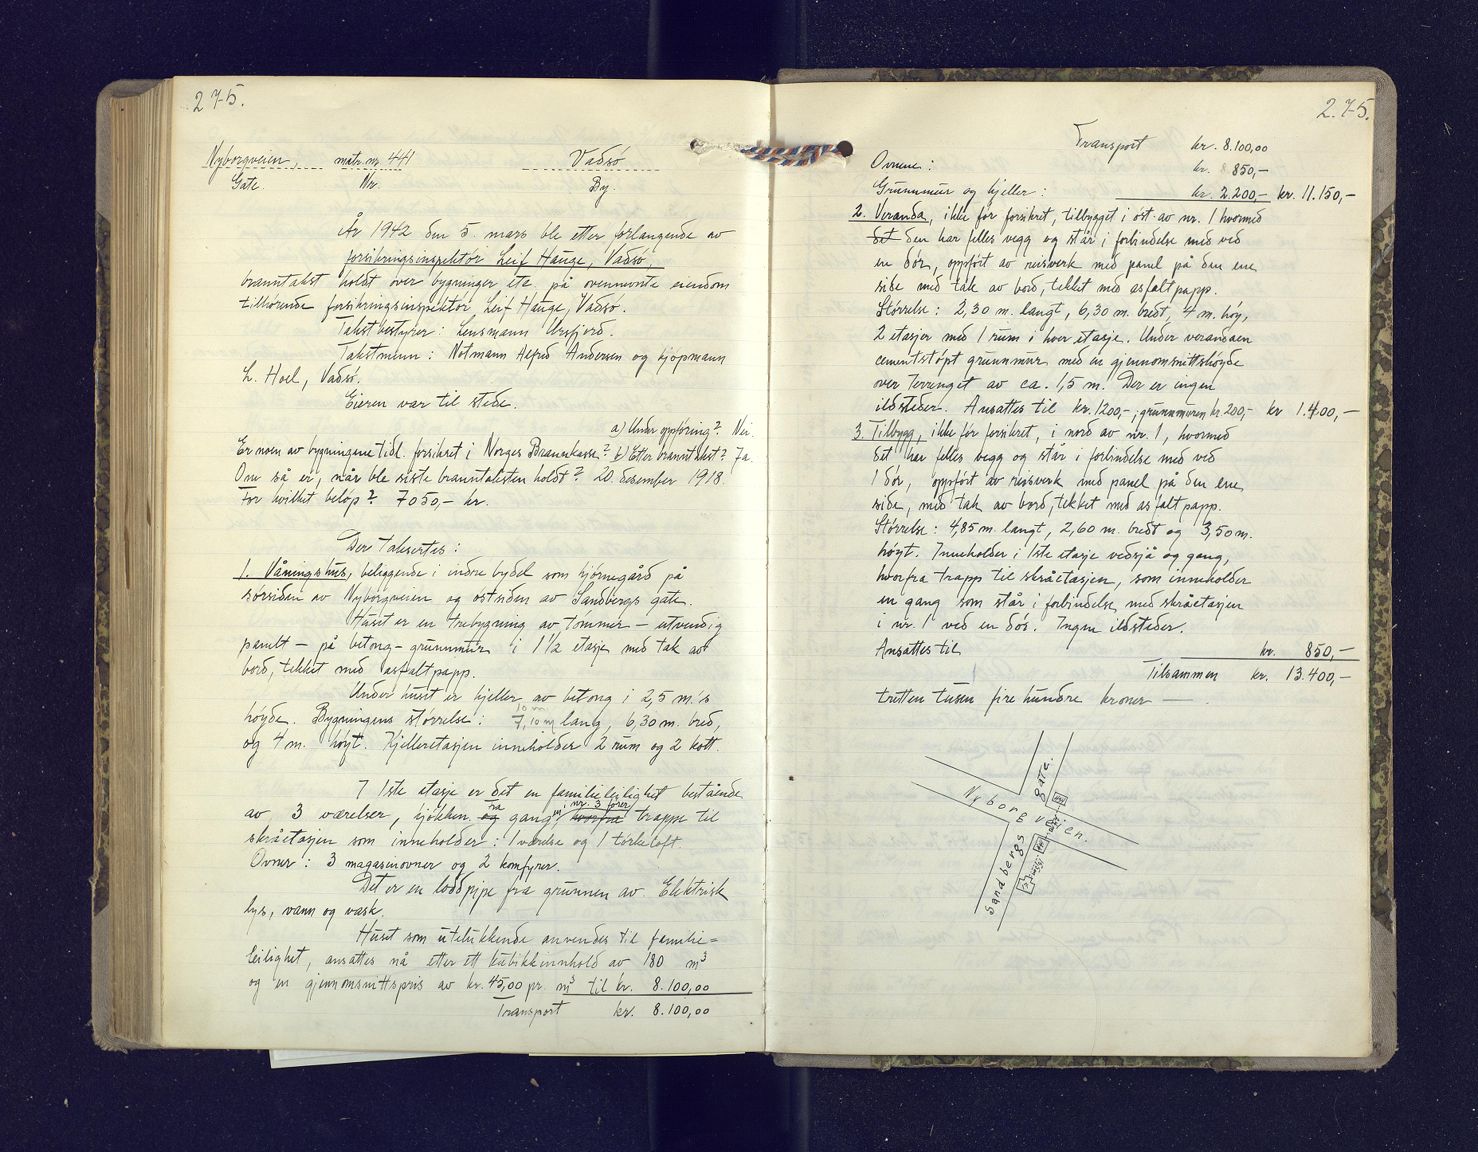 275.
Nyborgveien, matr. nr. 441 Vadsø
Gate. Nr. By.
År 1942 den 5. mars ble etter forlangende av
forsikringsinspektør Leif Hauge, Vadsø,
branntakst holdt over bygninger etc. på ovennevnte eiendom
tilhørende forsikringsinspektør Leif Hauge, Vadsø.
Takstbestyrer: Lensmann Ursfjord.
Takstmenn: Notmann Alfred Andersen og kjøpmann
L. Hoel, Vadsø.
Eieren var til stede.
a) Under oppføring? Nei.
Er noen av bygningene tidl. forsikret i Norges Brannkasse? b) Etter branntakst? Ja
Om så er, når ble siste branntaksten holdt? 20. desember 1918.
For hvilket beløp? 7050,- kr.
Der Takseres:
1. Våningshus, beliggende i indre bydel som hjørnegård på
sørsiden av Nyborgveien og østsiden av Sandbergs gate.
Huset er en trebygning av tømmer – utvendig
panelt – på betong-grunnmur, i 1½ etasje med tak av
bord, tekket med asfaltpapp.
Under huset er kjeller av betong i 2,5 m.'s
høyde. Bygningens størrelse: 7,10 m lang, 6,30 m. bred,
og 4 m. høyt. Kjelleretasjen inneholder 2 rum og 2 kott.
I 1ste etasje er det en familieleilighet bestående
av 3 værelser, kjøkken og gang, hvorfra nr. 3 fører trappe til
skråetasjen som inneholder: 1 værelse og 1 tørkeloft.
Ovner: 3 magasinovner og 2 komfyrer.
Det er en loddpipe fra grunnen av Elektrisk
lys, vann og vask.
Huset som utelukkende anvendes til familie=
leilighet, ansettes nå etter ett kubikkinnhold av 180 m³
og en gjennomsnittspris av kr. 45,00 pr. m³ til kr. 8.100,00
Transport kr. 8.100,00
275.
Transport kr. 8.100,00
Ovnene: kr. 850,-
Grunnmur og kjeller: kr. 2.200,- kr. 11.150,-
2. Veranda, ikke før forsikret, tilbygget i øst av nr. 1 hvormed
det den har felles vegg og står i forbindelse med ved
en dør, oppført av reisverk med panel på den ene
side med tak av bord, tekket med asfaltpapp.
Størrelse: 2,30 m. langt, 6,30 m. bredt, 4 m. høy,
2 etasjer med 1 rum i hver etasje. Under verandaen
cementstøpt grunnmur med en gjennomsnittshøyde
over Terrenget av ca. 1,5 m. Der er ingen
ildsteder. Ansettes til kr. 1200,-, grunnmuren kr. 200,- kr 1.400,-
3. Tilbygg, ikke før forsikret, i nord av nr. 1, hvormed
det har felles vegg og står i forbindelse med ved
1 dør, oppført av reisverk med panel på den ene
side, med tak av bord, tekket med asfaltpapp.
Størrelse: 4,85 m. langt, 2,60 m. bredt og 3,50 m.
høyt. Inneholder i 1ste etasje vedsjå og gang,
hvorfra trapp til skråetasjen, som inneholder
en gang som står i forbindelse med skråetasjen
i nr. 1 ved en dør. Ingen ildsteder.
Ansettes til kr. 850,-
Tilsammen kr. 13.400,-
tretten tusen fire hundre kroner —
Nyborgveien.
Sandbergs gate.